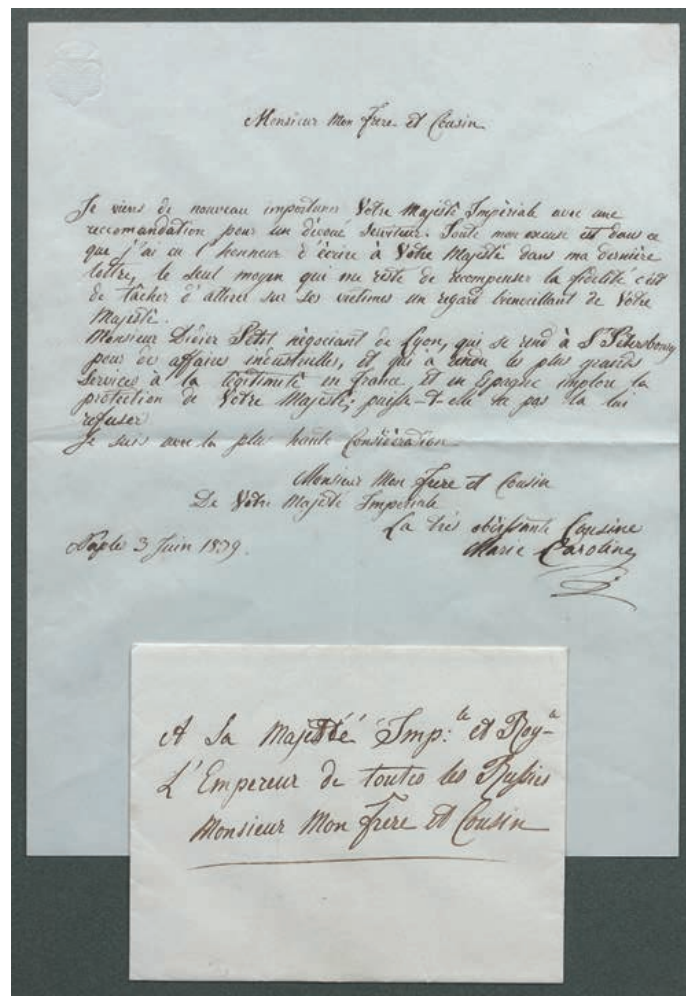 Monsieur Mon Frere et Cousin
Je viens de nouveau importuner Votre Majesté Impériale avec une
recomandation pour un dévoué serviteur. Toute mon excuse est dans ce
que j'ai eu l'honneur d'écrire à Votre Majesté dans ma dernière
lettre, le seul moyen qui me reste de recompenser la fidélité c'est
de tâcher d'attirer sur ses victimes un regard bienveillant de Votre
Majesté.
Monsieur Didier Petit négociant de Lyon, qui se rend à St Petersbourg
pour de affaires industrielles, et qui à rendu les plus grands
Services à la légitimité en france et en Espagne implore la
protection de Votre Majesté; puisse-t-elle ne pas la lui
refuser
Je suis avec la plus haute Considération
Monsieur Mon Frere et Cousin
De Votre Majesté Impériale
La très obéissante Cousine
Naples 3 Juin 1839.
Marie Caroline
A Sa Majesté Imp:le et Roy-le
L'Empereur de toutes les Russies
Monsieur Mon Frere et Cousin